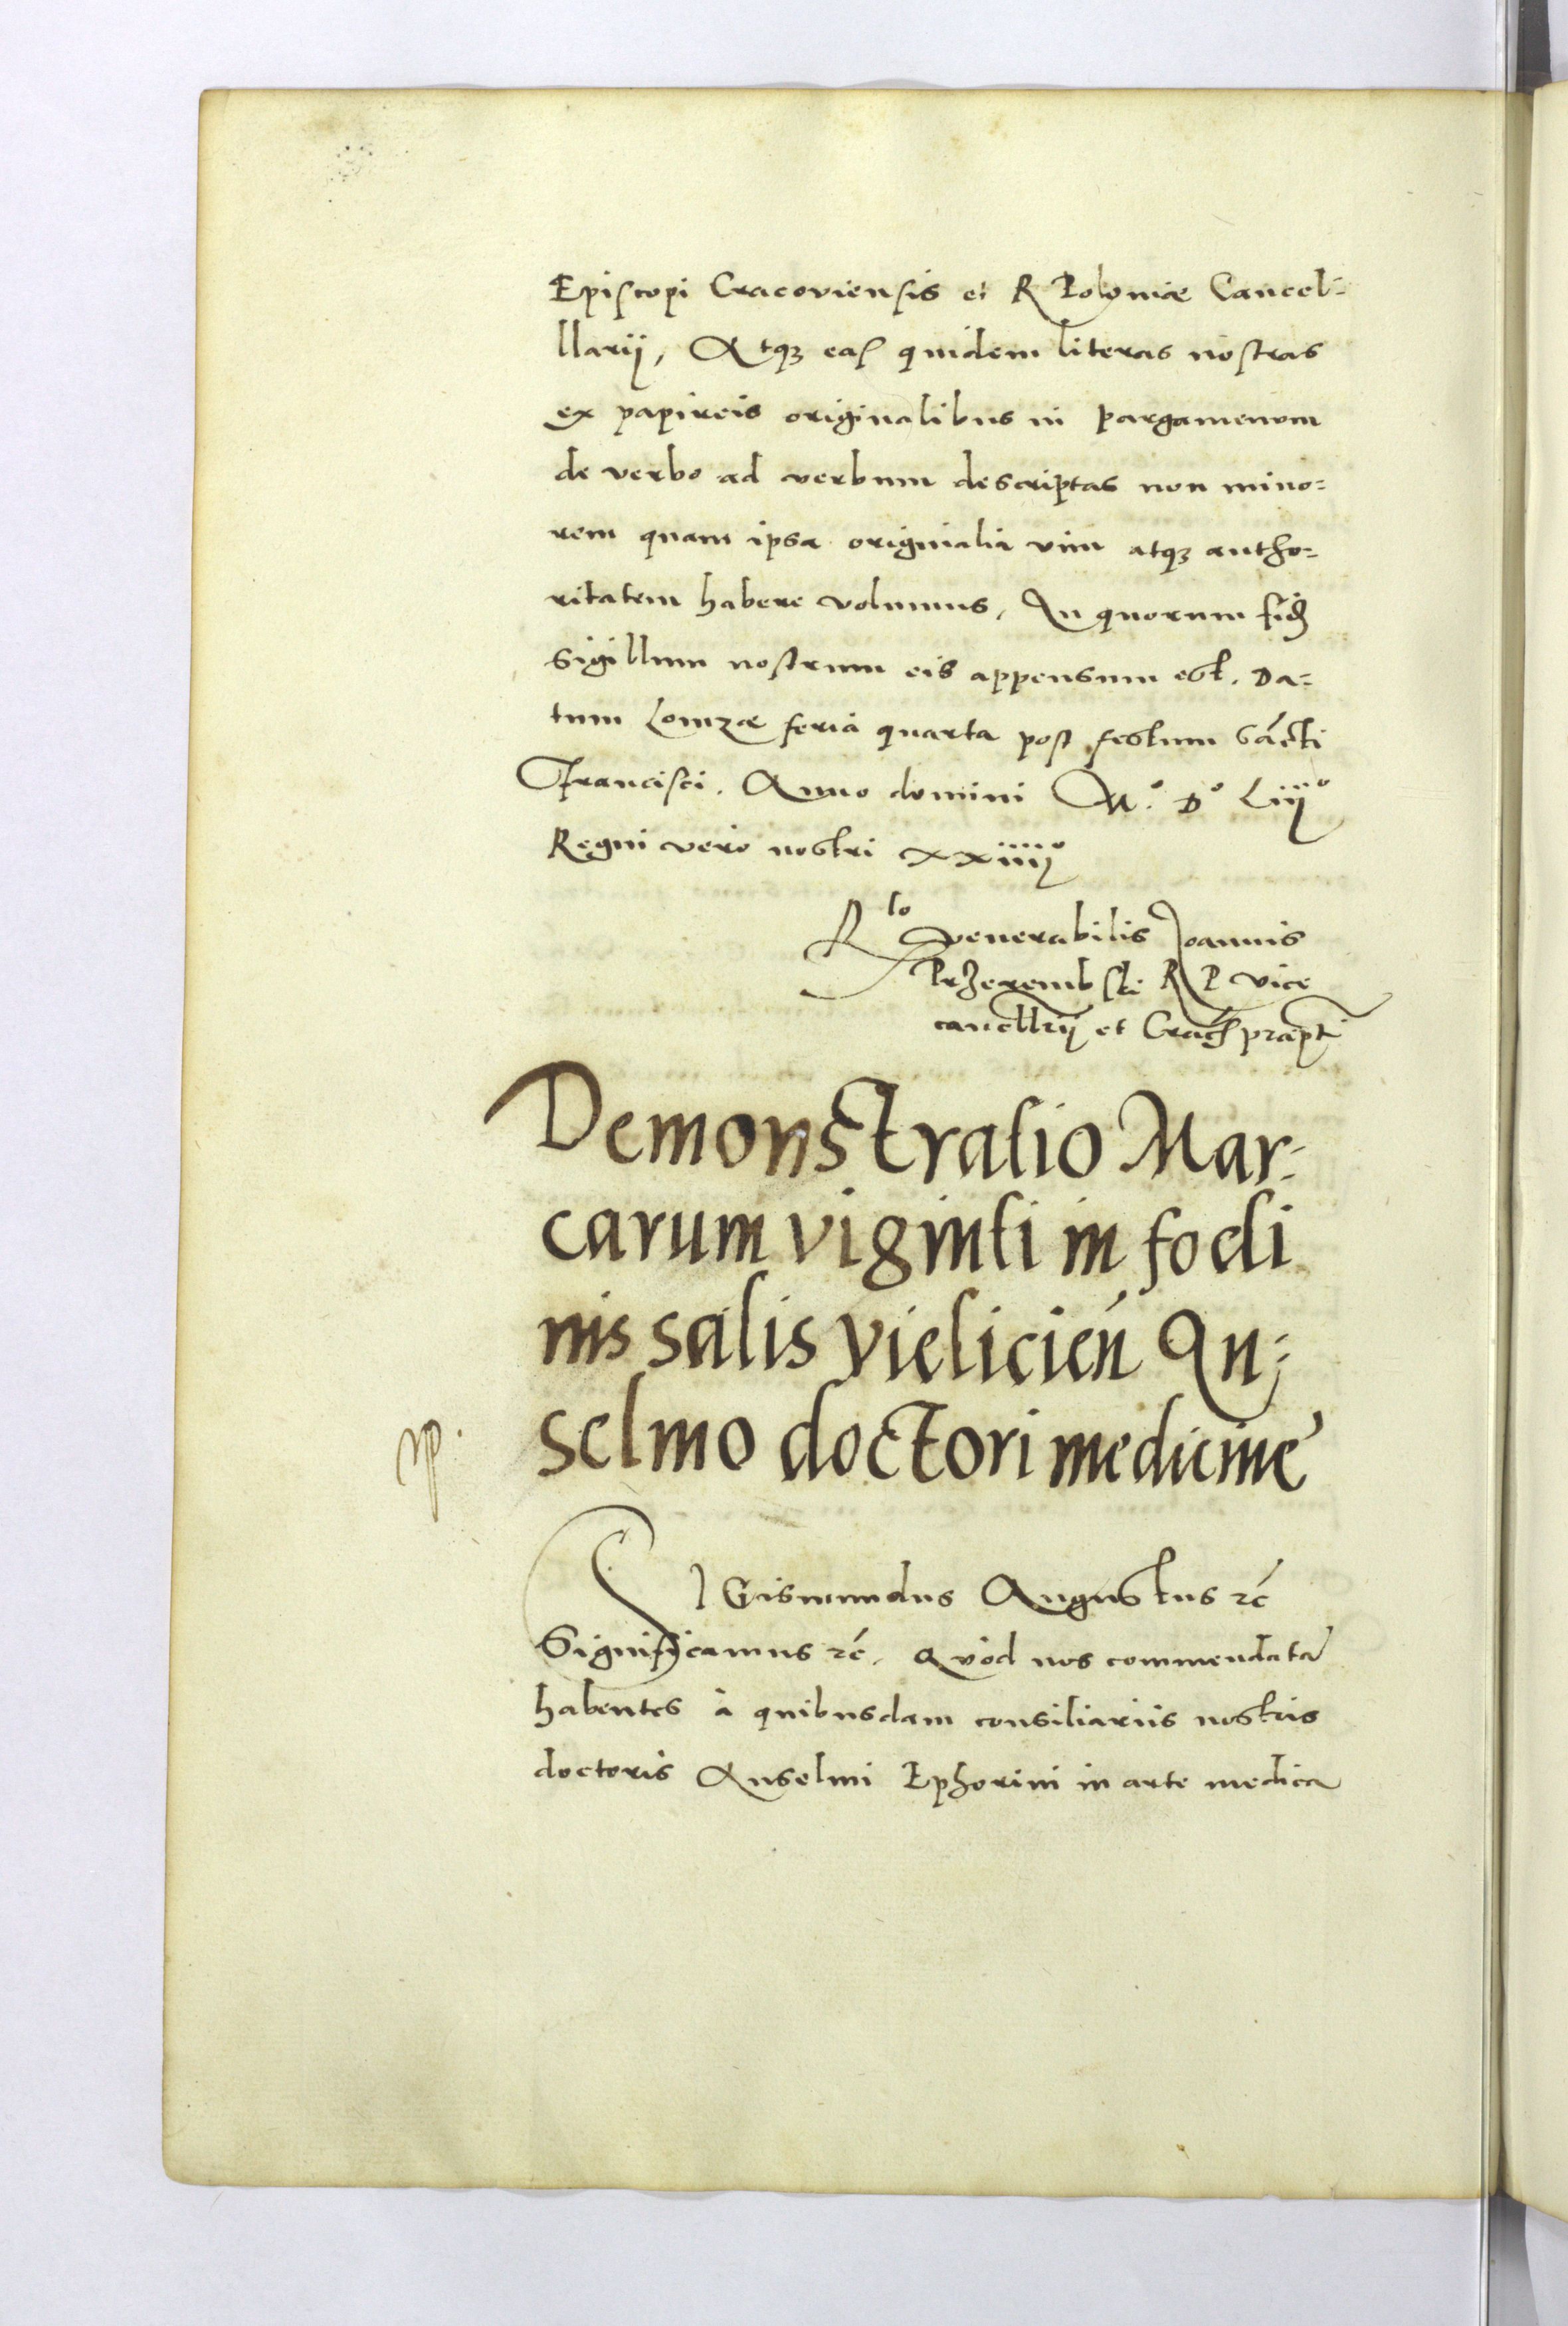 Episcopi Cracoviensis et R Poloniæ Cancel=
llarij, Atqꝫ eas quidem literas nostras
ex papireis originalibus in pargamenum
de verbo ad verbum descriptas non mino=
rem quam ipsa originalia vim atqꝫ autho=
ritatem habere volumus. In quorum fidẽ
sigillum nostrum eis appensum est. Da=
tum Lomzæ feria quarta post festum Sãcti
Francisci. Anno domini Mº. Dº Liijº
Regni vero nostri xxiiijº
Rlo venerabilis Joannis
Przerembski R P vice
cancellrij et Cracẽ præpti
Demonstratio Mar=
carum viginti in fodi
nis salis Vielicień An=
selmo doctori medicine
SIGismundus Augustus rc̃
Significamus rc̃. Quòd nos commendatã
habentes à quibusdam consiliariis nostris
doctoris Anselmi Ephorini in arte medica